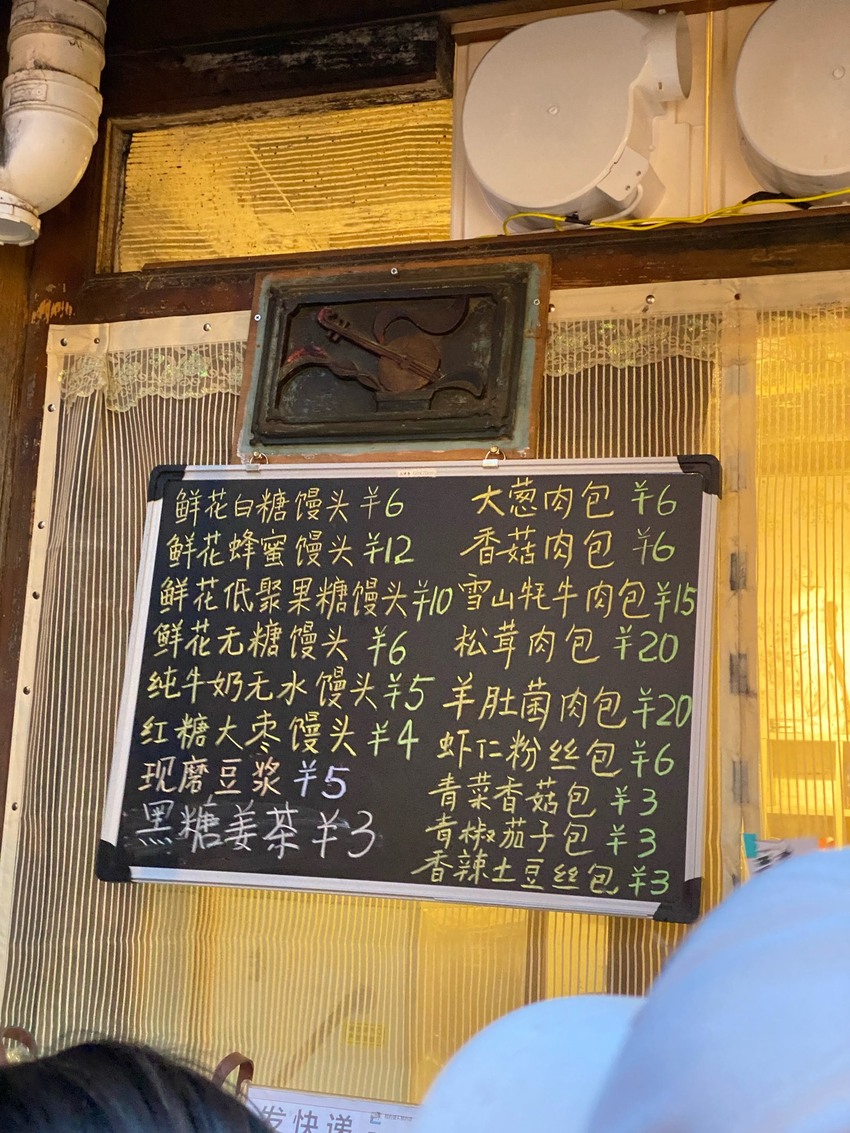 鲜花白糖馒头 ¥6
鲜花蜂蜜馒头 ¥12
鲜花低聚果糖馒头 ¥10
鲜花无糖馒头 ¥6
纯牛奶无水馒头 ¥5
红糖大枣馒头 ¥4
现磨豆浆 ¥5
黑糖姜茶 ¥3
大葱肉包 ¥6
香菇肉包 ¥6
雪山牦牛肉包 ¥15
松茸肉包 ¥20
羊肚菌肉包 ¥20
虾仁粉丝包 ¥6
青菜香菇包 ¥3
青椒茄子包 ¥3
香辣土豆丝包 ¥3
发快递